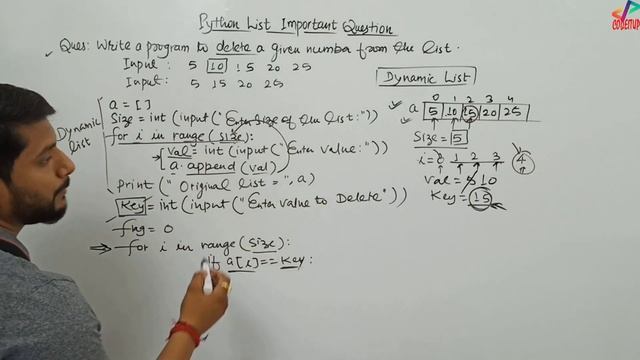 Python List Important Question
CODEITUP
Ques: Write a program to delete a given number from the list.
Input: 5 10 15 20 25
Input: 5 15 20 25
Dynamic List
Dynamic list
a = [ ]
Size = int (input ("Enter Size of the List:"))
for i in range (Size):
val = int (input ("Enter value:"))
a.append (val)
print (" Original List =", a)
Key = int (input ("Enter value to Delete"))
flag = 0
for i in range (Size):
if a[i] == Key:
0 1 2 3 4
a 5 10 15 20 25
Size = 5
i = 0 1 2 3 4
Val = 5 10
Key = 15